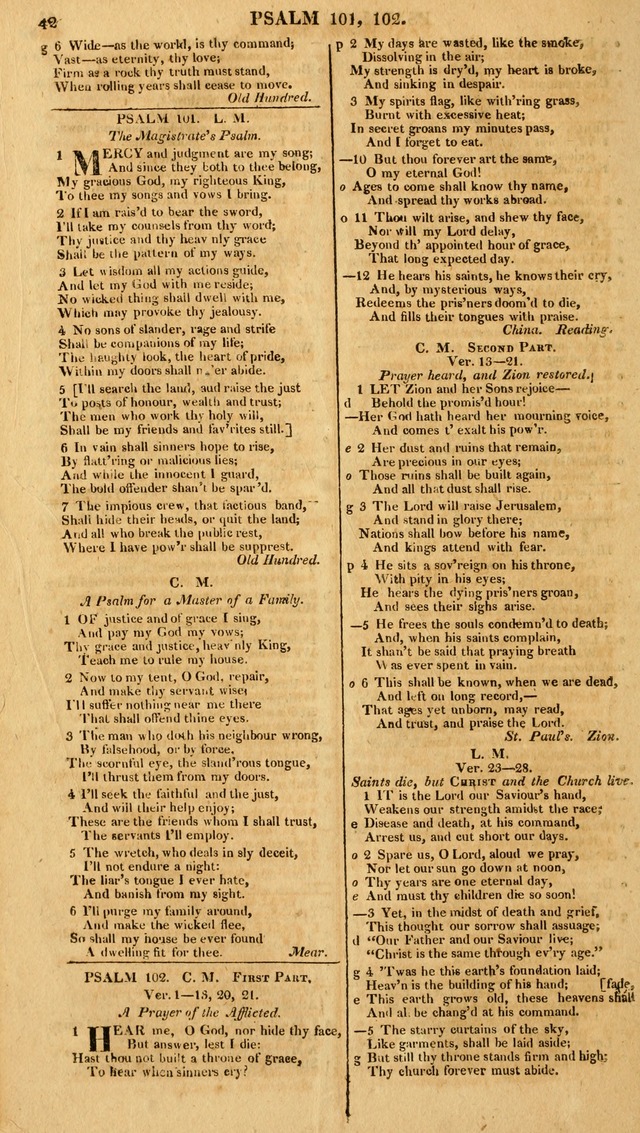 42
PSALM 101, 102.
g 6 Wide—as the world, is thy command;
Vast—as eternity, thy love;
Firm as a rock thy truth must stand,
When rolling years shall cease to move.
Old Hundred.
PSALM 101. L. M.
The Magistrate's Psalm.
1 MERCY and judgment are my song;
And since they both to thee belong,
My gracious God, my righteous King,
To thee my songs and vows I bring.
2 If I am rais'd to bear the sword,
I'll take my counsels from thy word;
Thy justice and thy heav'nly grace
Shall be the pattern of my ways.
3 Let wisdom all my actions guide,
And let my God with me reside;
No wicked thing shall dwell with me,
Which may provoke thy jealousy.
4 No sons of slander, rage and strife
Shall be companions of my life;
The haughty look, the heart of pride,
Within my doors shall ne'er abide.
5 [I'll search the land, aud raise the just
To posts of honour, wealth and trust;
The men who work thy holy will,
Shall be my friends and fav'rites still.]
6 In vain shall sinners hope to rise,
By flatt'ring or malicious lies;
And while the innocent I guard,
The bold offender shan't be spar'd.
7 The impious crew, that factious band,
Shall hide their heads, or quit the land;
And all who break the public rest,
Where I have pow'r shall be supprest.
Old Hundred.
C. M.
A Psalm for a Master of a Family.
1 OF justice and of grace I sing,
And pay my God my vows;
Thy grace and justice, heav'nly King,
Teach me to rule my house.
2 Now to my tent, O God, repair,
And make thy servant wise;
I'll suffer nothing near me there
That shall offend thine eyes.
3 The man who doth his neighbour wrong,
By falsehood, or by force,
The scornful eye, the sland'rous tongue,
I'll thrust them from my doors.
4 I'll seek the faithful and the just,
And will their help enjoy;
These are the friends whom I shall trust,
The servants I'll employ.
5 The wretch, who deals in sly deceit,
I'll not endure a night:
The liar's tongue I ever hate,
And banish from my sight.
6 I'll purge my family around,
And make the wicked flee,
So shall my house be ever found
A dwelling fit for thee. Mear.
PSALM 102. C. M. FIRST PART.
Ver. 1—13, 20, 21.
A Prayer of the Afflicted.
1 HEAR me, O God, nor hide thy face,
But answer, lest I die:
Hast thou not built a throne of grace,
To hear when sinners cry?
p 2 My days are wasted, like the smoke,
Dissolving in the air;
My strength is dry'd, my heart is broke,
And sinking in despair.
3 My spirits flag, like with'ring grass,
Burnt with excessive heat;
In secret groans my minutes pass,
And I forget to eat.
—10 But thou forever art the same,
O my eternal God!
o Ages to come shall know thy name,
And spread thy works abroad.
o 11 Thou wilt arise, and shew thy face,
Nor will my Lord delay,
Beyond th' appointed hour of grace,
That long expected day.
—12 He hears his saints, he knows their cry,
And, by mysterious ways,
Redeems the pris'ners doom'd to die,
And fills their tongues with praise.
China. Reading.
C. M. SECOND PART.
Ver. 13—21.
Prayer heard, and Zion restored.
1 LET Zion and her Sons rejoice—
d Behold the promis'd hour!
—Her God hath heard her mourning voice,
And comes t' exalt his pow'r.
e 2 Her dust and ruins that remain,
Are precious in our eyes;
o Those ruins shall be built again,
And all that dust shall rise.
g 3 The Lord will raise Jerusalem,
And stand in glory there;
Nations shall bow before his name,
And kings attend with fear.
p 4 He sits a sov'reign on his throne,
With pity in his eyes;
He hears the dying pris'ners groan,
And sees their sighs arise.
—5 He frees the souls condemn'd to death;
And, when his saints complain,
It shan't be said that praying breath
Was ever spent in vain.
o 6 This shall be known, when we are dead,
And left on long record,—
That ages yet unborn, may read,
And trust, and praise the Lord.
St. Paul's. Zion.
L. M.
Ver. 23—28.
Saints die, but CHRIST and the Church live.
1 IT is the Lord our Saviour's hand,
Weakens our strength amidst the race;
e Disease and death, at his command,
Arrest us, and cut short our days.
o 2 Spare us, O Lord, aloud we pray,
Nor let our sun go down at noon,
o Thy years are one eternal day,
e And must thy children die so soon!
—3 Yet, in the midst of death and grief,
This thought our sorrow shall assuage;
d “Our Father and our Saviour live;
“Christ is the same through ev'ry age.”
g 4 'Twas he this earth's foundation laid;
Heav'n is the building of his hand; [fade,
e This earth grows old, these heavens shall
And all be chang'd at his command.
—5 The starry curtains of the sky,
Like garments, shall be laid aside;
g But still thy throne stands firm and high;
Thy church forever must abide.